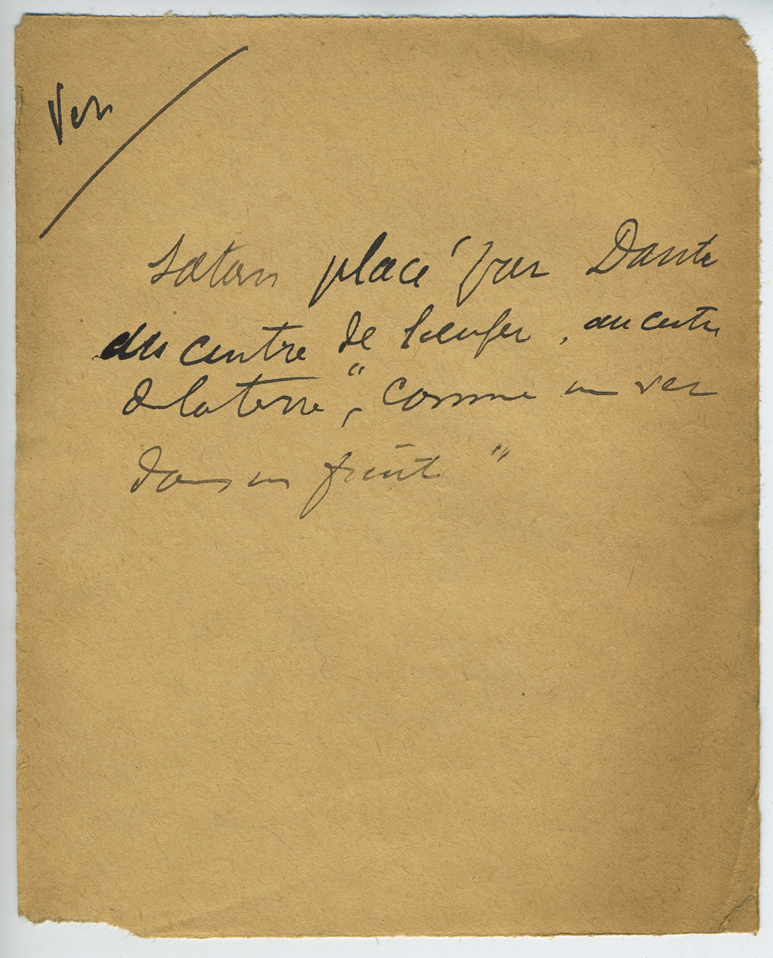 Ver
Satan placé par Dante
au centre de l'enfer, au centre
de la terre, "comme un ver
dans un fruit"